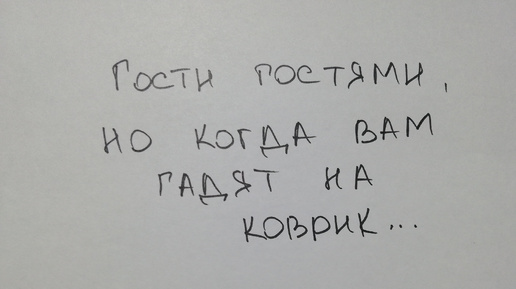 Гости гостями,
но когда вам
гадят на
коврик...